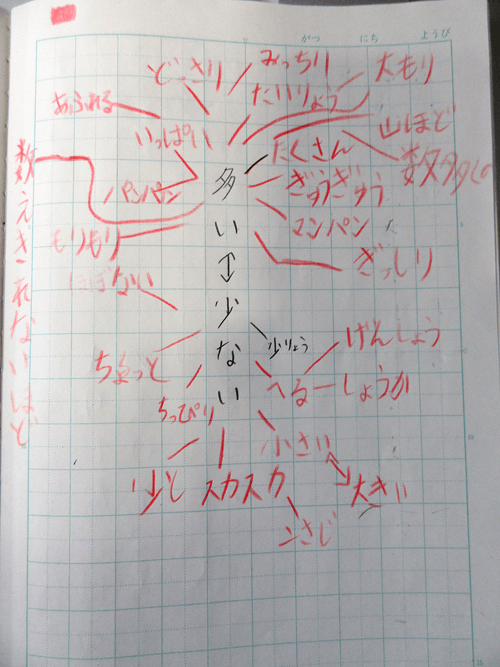 がつ にち ようび
どっさり
みっちり
大もり
あふれる
たいりょう
いっぱい
山ほど
たくさん
数えきれないほど
パンパン
ぎゅうぎゅう
マンパン
もりもり
ぎっしり
ほぼない
多い↕少ない
少りょう
げんしょう
ちょっと
へる
しょうか
ちっぴり
小さい
少し
スカスカ
大きい